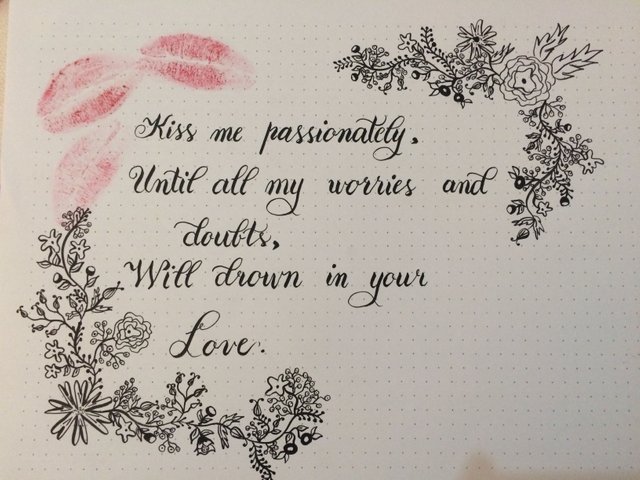 Kiss me passionately,
Until all my worries and
doubts,
Will drown in your
Love.